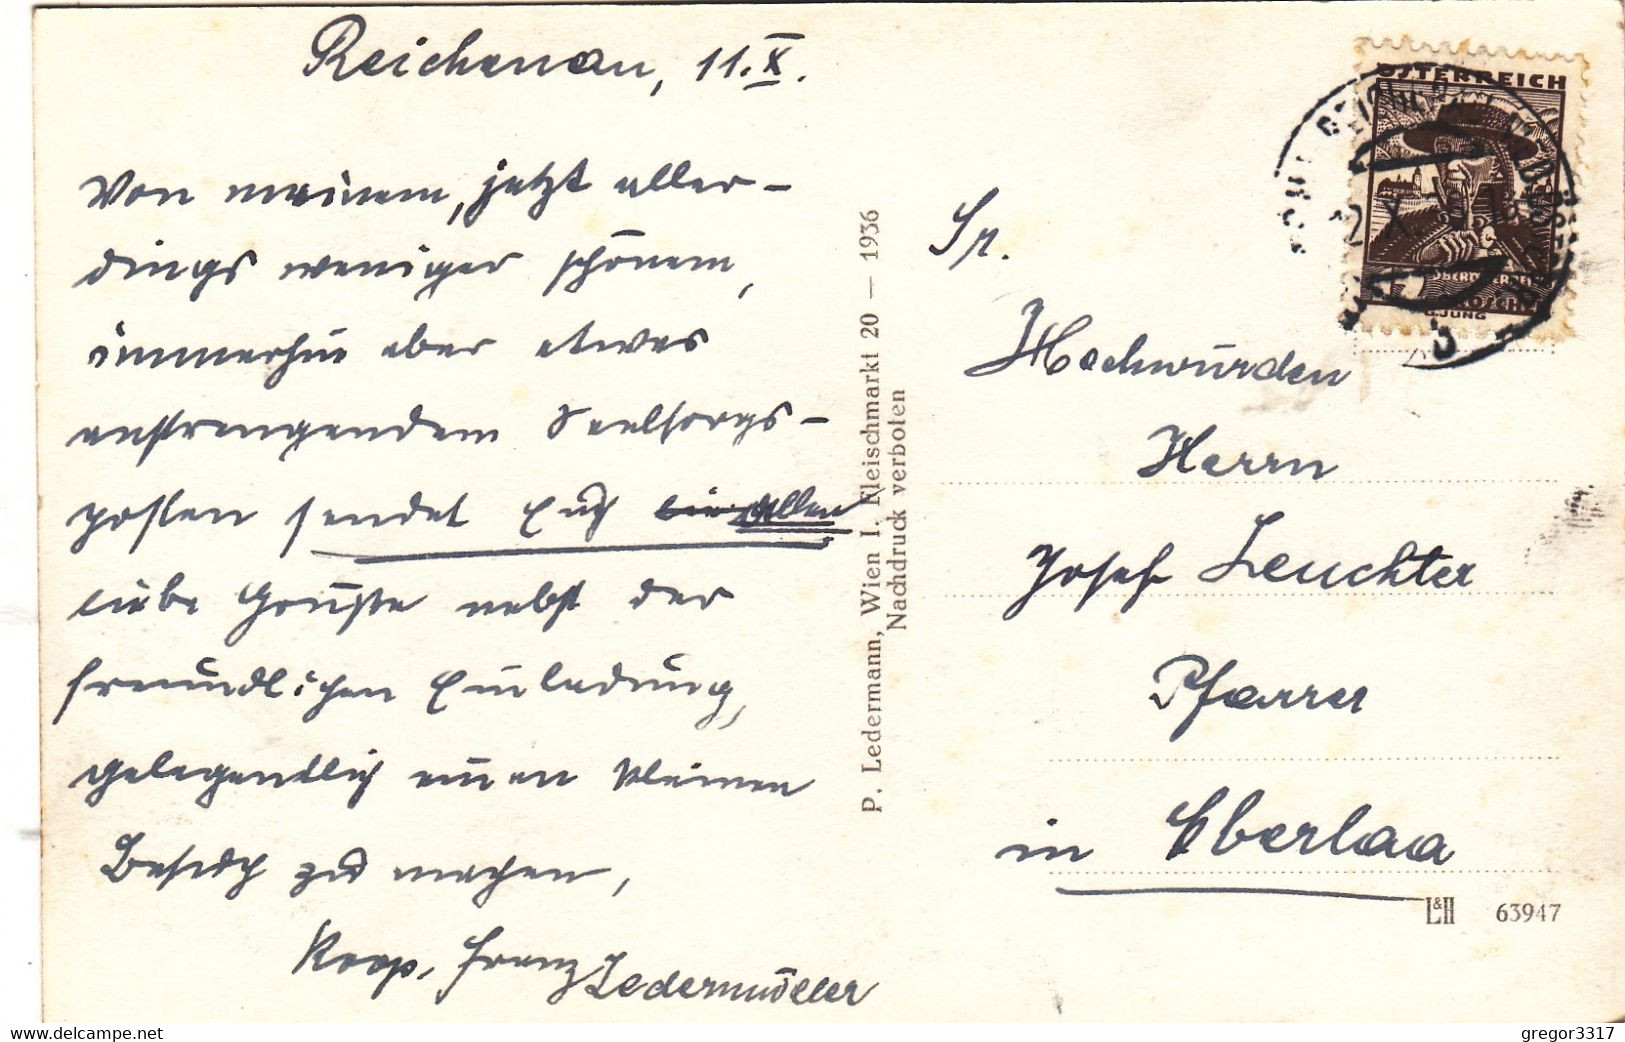 Reichenau, 11. X.
Von meinem, jetzt aller-
dings weniger schönem,
immerhin aber etwas
anstrengendem Seelsorgs-
posten sendet Euch allen
liebe Grüße nebst der
freundlichen Einladung,
gelegentlich einen kleinen
Besuch zu machen,
Koop. Franz Ledermüller
P. Ledermann, Wien I. Fleischmarkt 20 — 1936
Nachdruck verboten
ÖSTERREICH
G.JUNG
Sr.
Hochwürden
Herrn
Josef Leuchter
Pfarrer
in Oberlaa
L&H 63947
www.delcampe.net
gregor3317